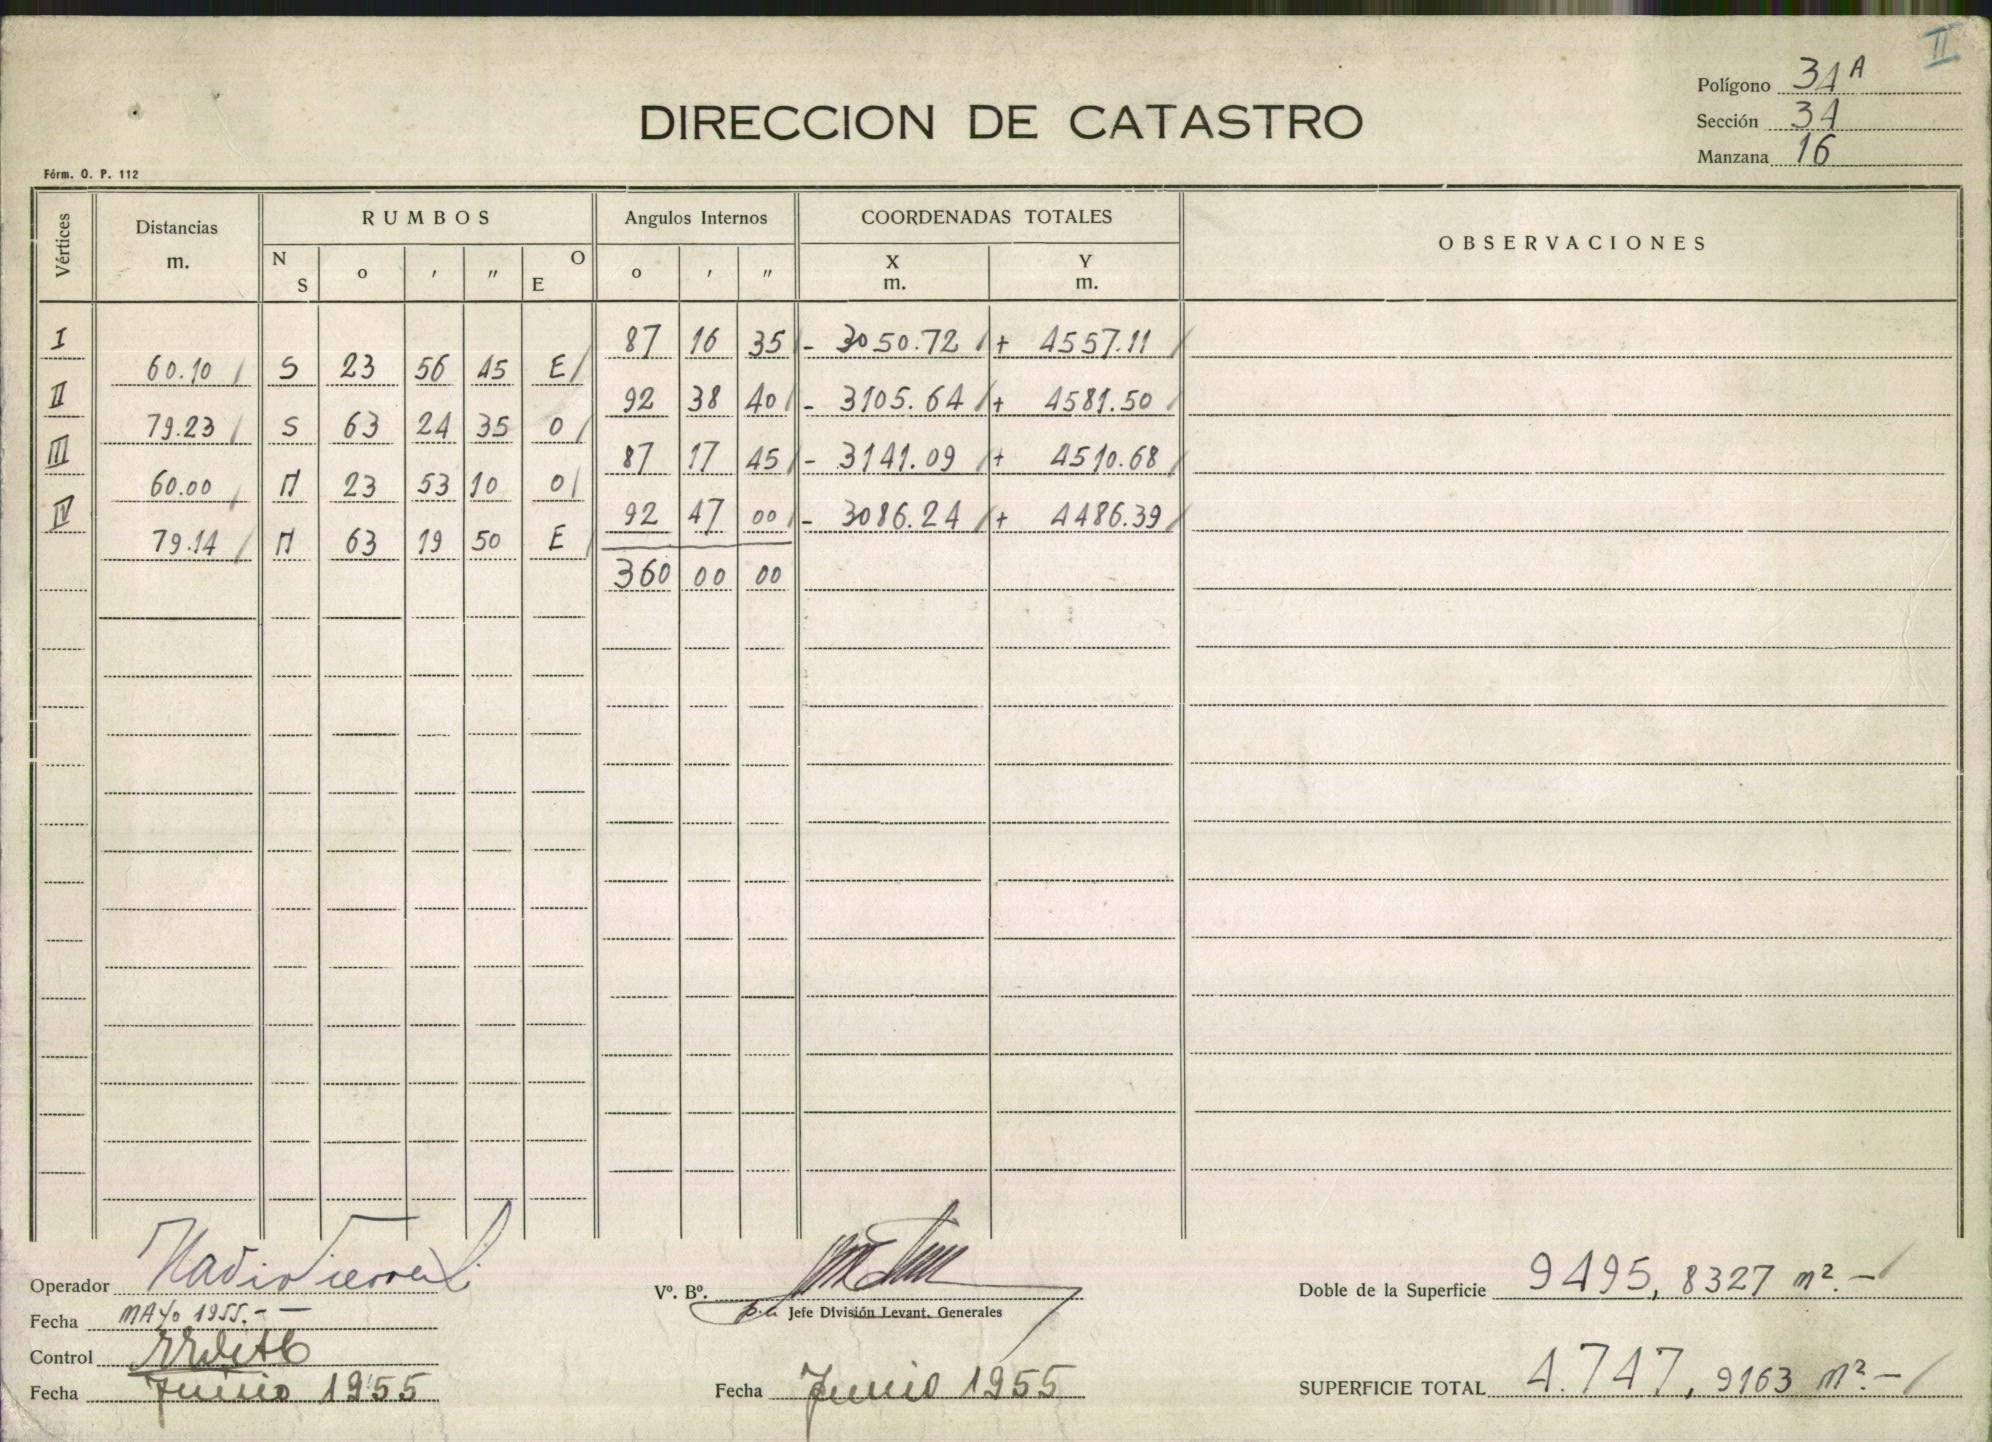 II
Polígono 34A
DIRECCION DE CATASTRO
Sección 34
Manzana 16
Fórm. O. P. 112
Vértices Distancias m. RUMBOS N S o ′ ″ O E Angulos Internos o ′ ″ COORDENADAS TOTALES X m. Y m. OBSERVACIONES
I 87 16 35 - 3050.72 + 4557.11
60.10 S 23 56 45 E
II 92 38 40 - 3105.64 + 4581.50
79.23 S 63 24 35 O
III 87 17 45 - 3141.09 + 4510.68
60.00 N 23 53 10 O
IV 92 47 00 - 3086.24 + 4486.39
79.14 N 63 19 50 E
360 00 00
Operador
Vº. Bº.
Doble de la Superficie 9495,8327 m².-
Jefe División Levant. Generales
Fecha MAYO 1955.-
Control
Fecha Junio 1955
Fecha Junio 1955
SUPERFICIE TOTAL 4.747,9163 m².-